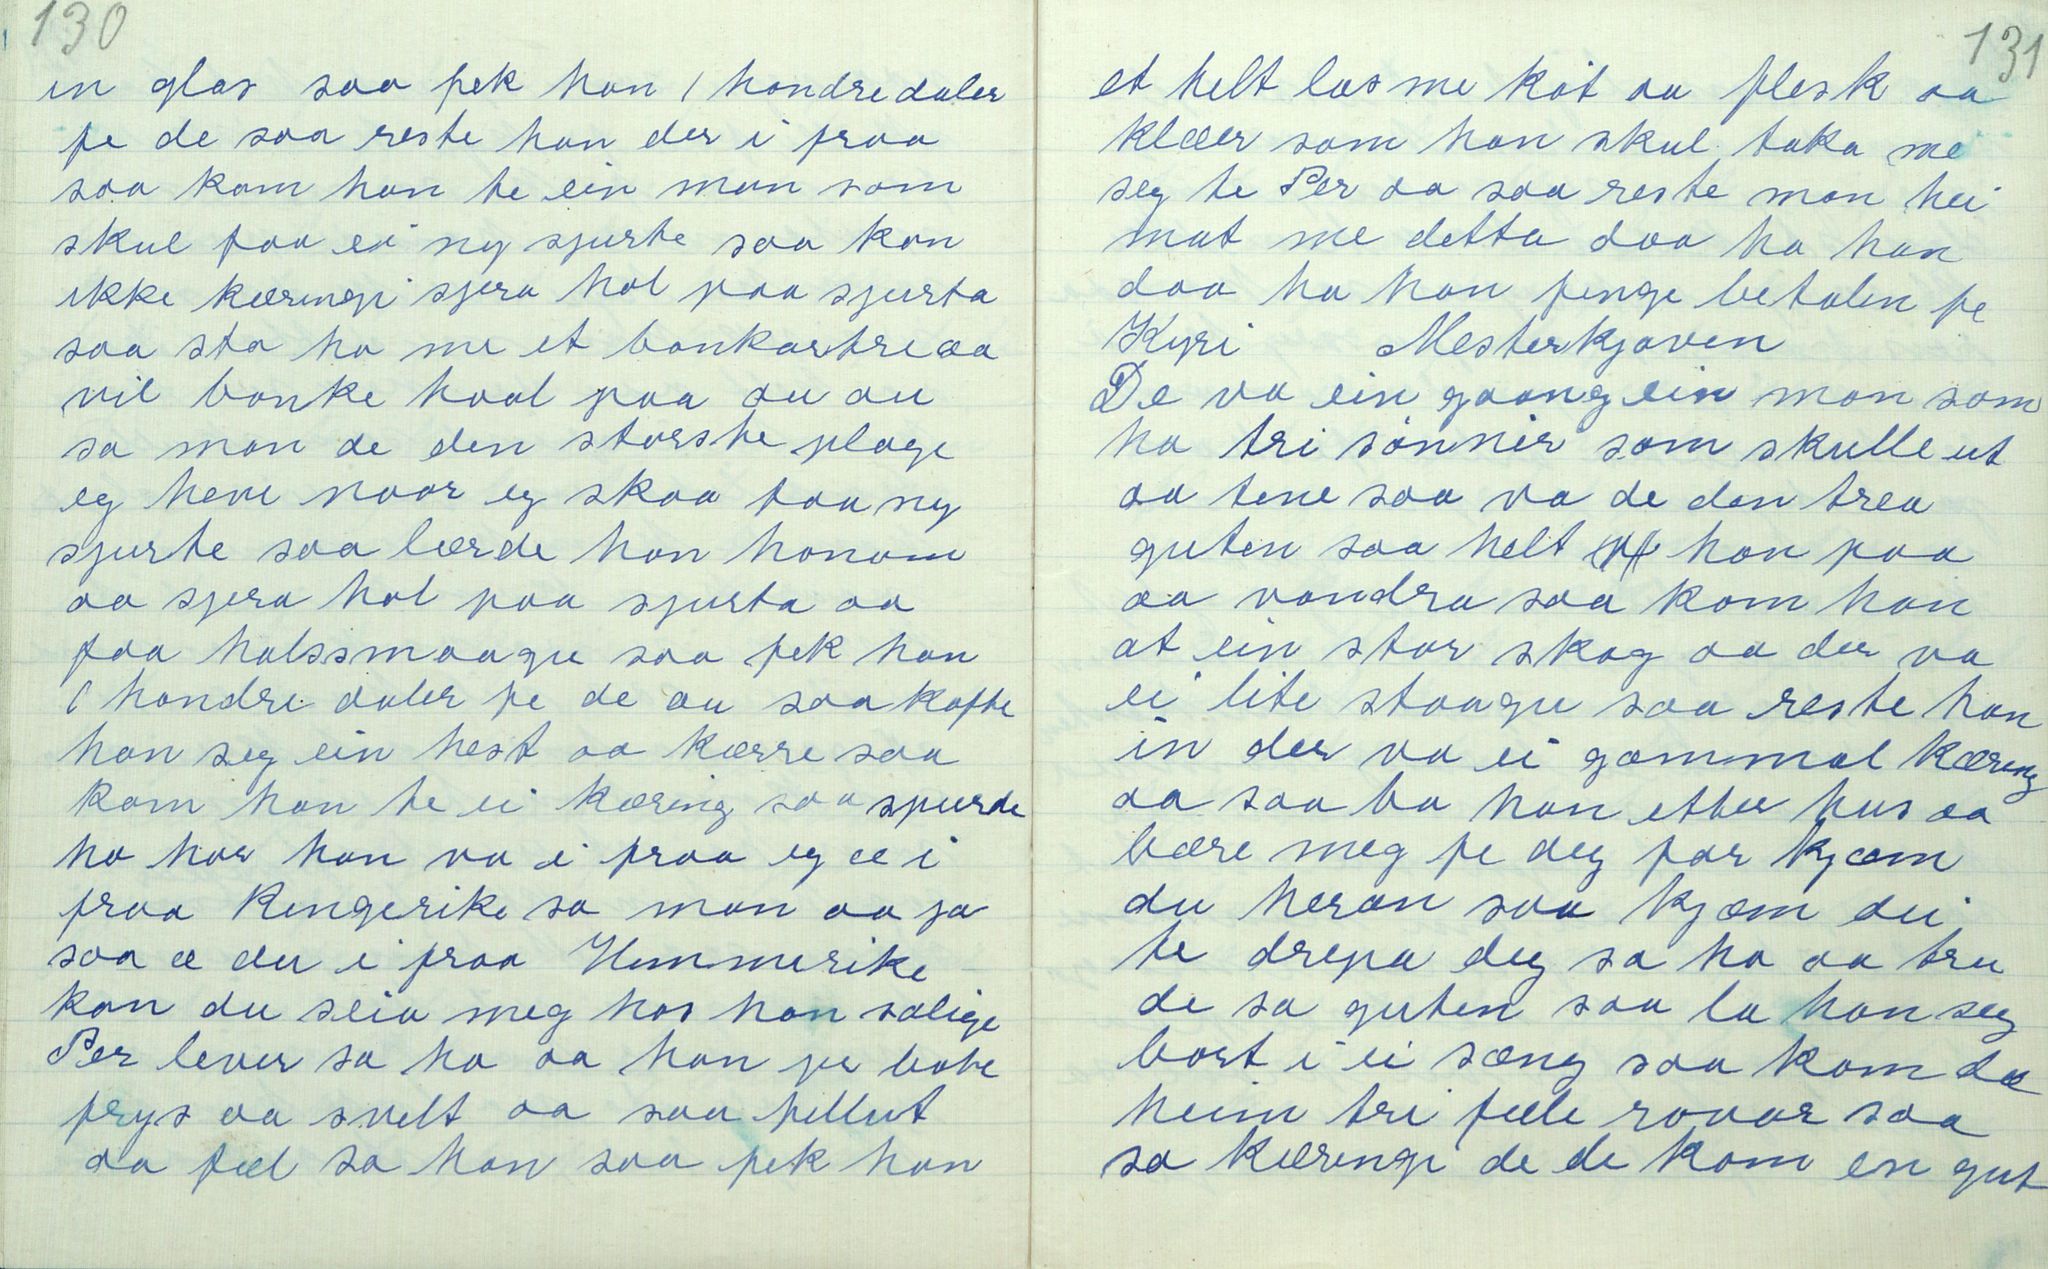 130
in glas saa fek han 1 hondre daler
fe de saa reste han der i fraa
saa kom han te ein man som
skul faa ei ny sjurte saa kan
ikke kæringi sjera hol paa sjurta
saa sto ho me et bankartre aa
vil banke haal paa au au
sa man de den storste plage
eg heve naar eg skaa faa ny
sjurte saa lærde han honom
aa sjera hol paa sjurta aa
faa halssmaagu saa fek han
1 hondre daler fe de au saa kofte
han seg ein hest aa kærre saa
kom han te ei kæring saa spurde
ho hor han va i fraa eg æ i
fraa Ringerike sa man aa ja
saa æ du i fraa Himmerike
kan du seia meg hos han salige
Per lever sa ho aa han je bate
frys aa svelt aa saa fellut
aa fæl sa han saa fek han
131
et helt las me köt aa flesk aa
klæer som han skul taka me
seg te Per aa saa reste man hei
mat me detta daa ha han
daa ha han penge betalen fe
Kyri Mesterkjøven
De va ein gaang ein man som
ha tri sönner som skulle ut
aa tene saa va de den trea
guten saa helt han paa
aa vandra saa kom han
at ein stor skog aa der va
ei lite staagu saa reste han
in der va ei gammal kæring
aa saa ba han etter hus aa
bære meg fe deg for kjæm
du heran saa kjæm dei
te drepa deg sa ho aa tru
de sa guten saa la han seg
bort i ei sæng saa kom dæ
heim tri fæle rovar saa
sa kæringi de de kom en gut